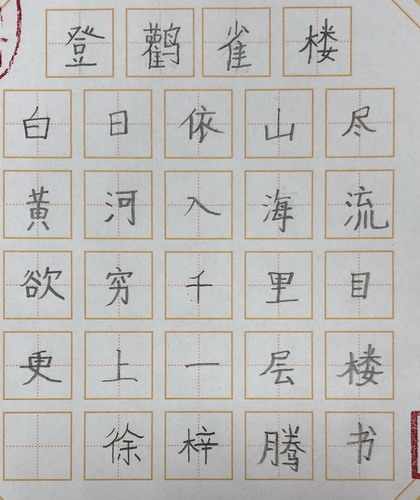 登鹳雀楼
白日依山尽
黄河入海流
欲穷千里目
更上一层楼
徐梓腾书